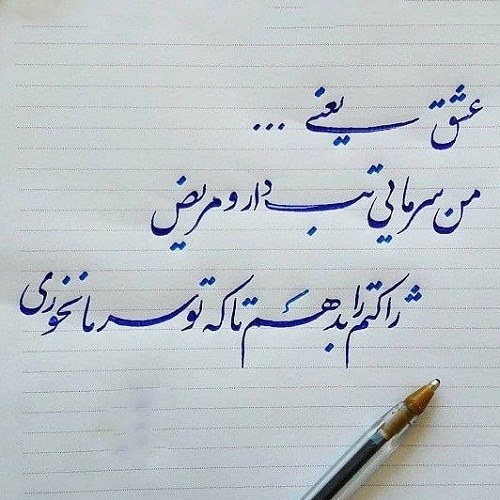 عشق یعنی ...
من سرمایی تب دار و مریض
ژاکتم را بدهم تا که تو سرما نخوری